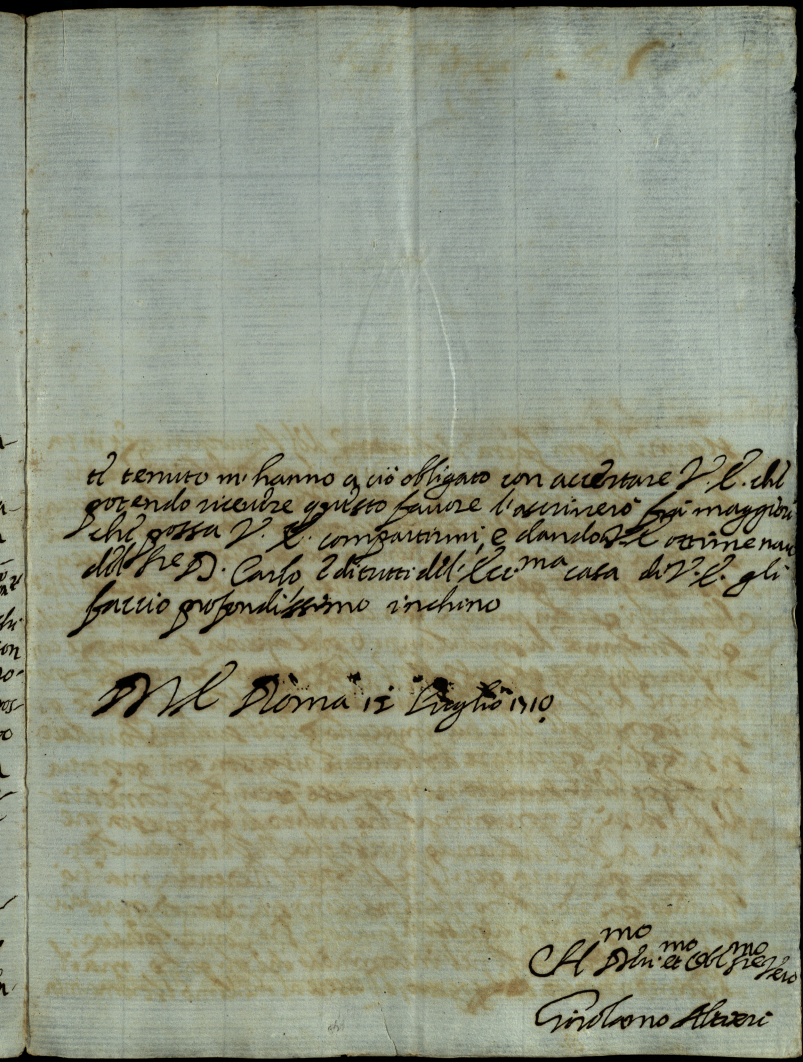 ti tenuto m'hanno a ciò obligato con accertare V. E. che
potendo ricevere questo favore l'ascriverò fra maggiori
che possa V. E. compartirmi, e dando V.E. ottime nuove
del Sre D. Carlo e di tutti dell'Ecc.ma casa di V. E. gli
faccio profondissimo inchino
Di V E Roma 12 Luglio 1710
mo mo mo
Obl Sre Vero
Girolamo Altieri